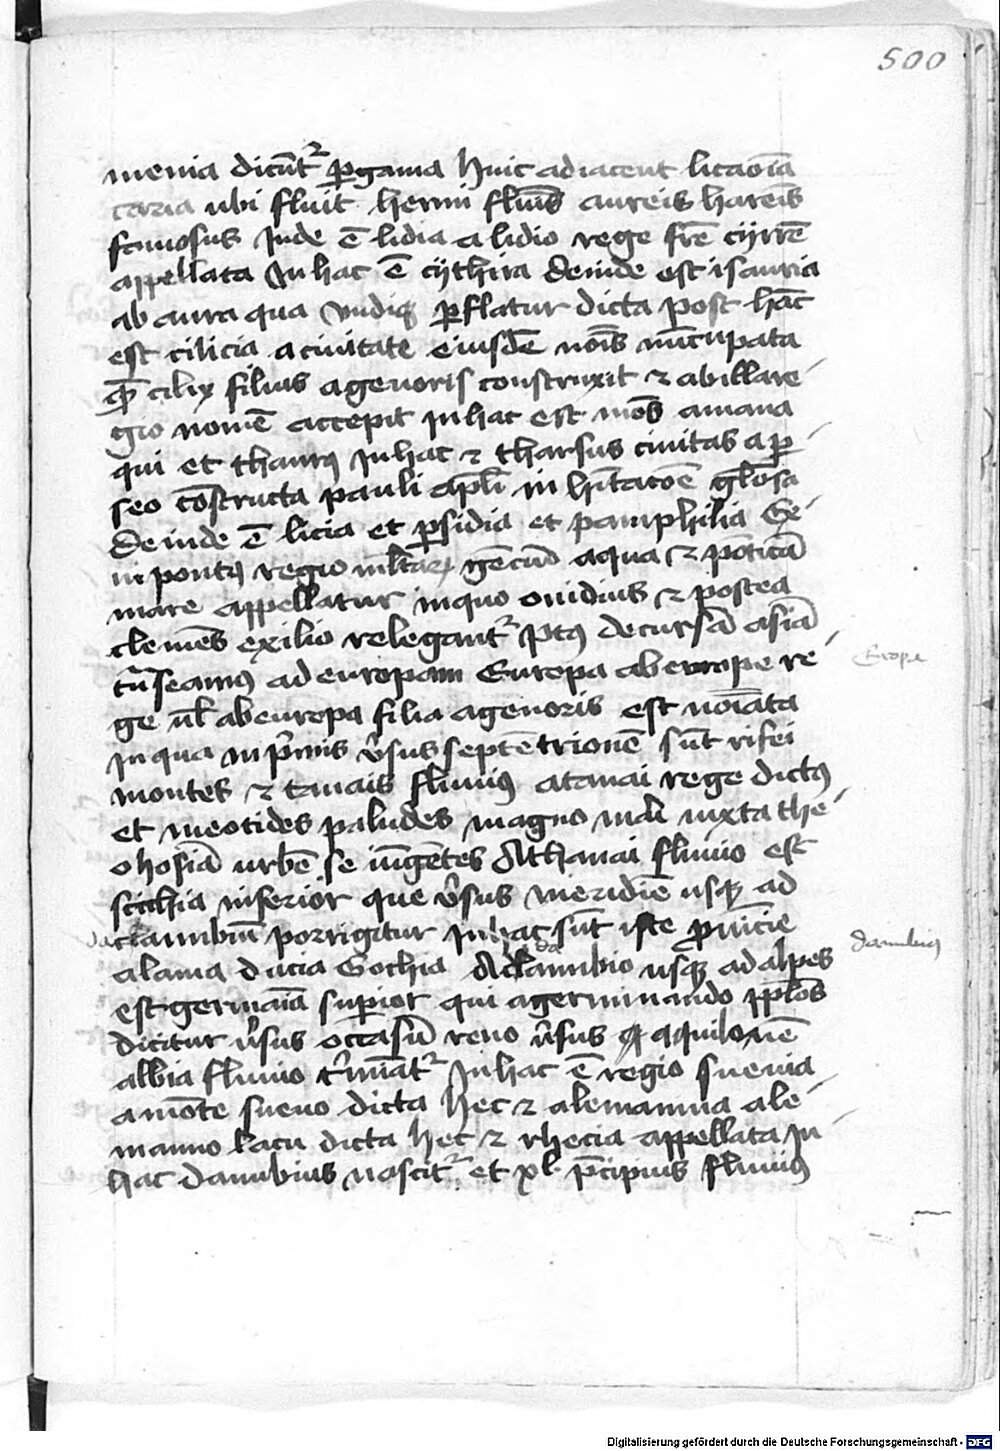 500
menia dicūtʳ ꝑgama huic adiacent licaōia
caria ubi fluit hermi fluuiꝰ aureis harenis
famosus Inde ē lidia a lidio rege frē cyrrē
appellata In hac ē cythira deinde est isauria
ab aura qua vndiqꝫ ꝑflatur dicta post hāc
est cilicia a ciuitate eiusdē nōis nūcupata
qā cilix filius agenoris construxit ⁊ ab illa re
gio nomē accepit In hac est mōs amana
qui et thaurꝰ In hac ⁊ tharsus ciuitas a ꝑ
seo cōstructa pauli apl̄i inhītacōe gl̄osa
Deinde ē licia et ꝑsidia et pamphilia
in pontꝰ regio ml̄taꝝ aqua ⁊ pōticū
mare appellatur in quo ouidius ⁊ postea
clemēs exilio relegantʳ decursa asia
tn̄seamꝰ ad europam Europa ab europe re
ge ul̄ ab europa filia agenoris est noīata
In qua in p̄mis v̄sus septētrionē sūt rifei
montes ⁊ tanais fluuiꝰ a tanai rege dictꝰ
et meotides paludes magno mari iuxta the
ohosiā urbē se iūgētes A thanai fluuio est
scithia inferior que v̄sus meridiē usqꝫ ad
danubiū porrigitur In hac sūt iste ꝓuīcie
alania dacia Gothia A danubio usqꝫ ad alpes
est germaīa suꝑior qui a germinando ppl̄os
dicitur v̄sus occasū reno v̄sus aquilonē
albia fluuio t̄mīatʳ In hac ē regio sueuia
a mōte sueuo dicta hec ⁊ alemannia ale
manno lacu dicta hec ⁊ rhecia appellata In
hac danubius noscitʳ et xl p̄cipuis fluuiis
Europe
danubiꝰ
Digitalisierung gefördert durch die Deutsche Forschungsgemeinschaft - DFG